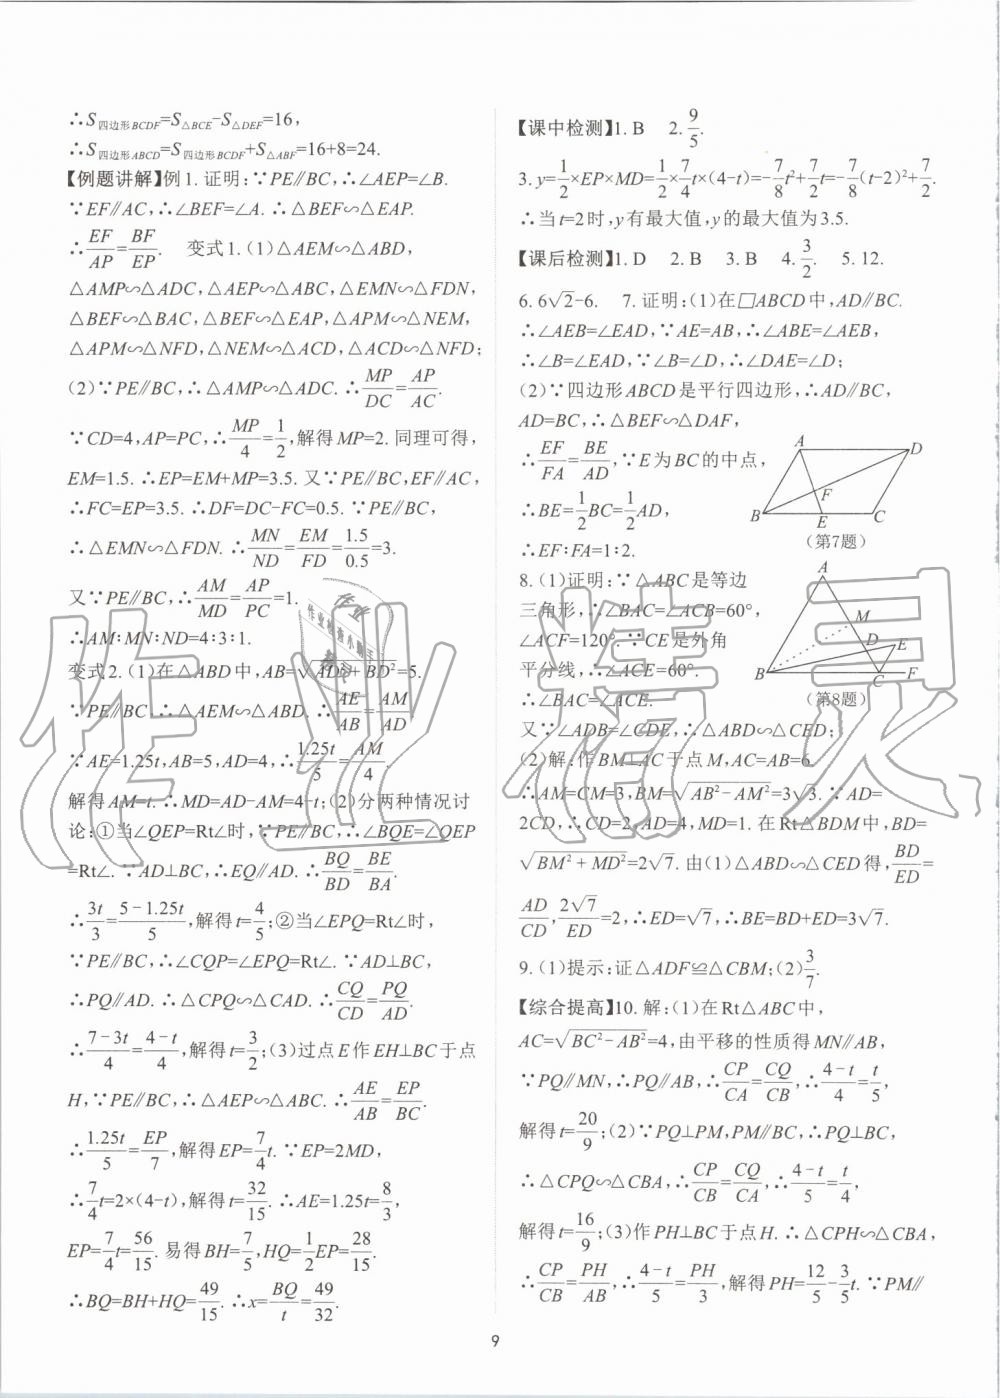 ∴S四边形BCDF=S△BCE-S△DEF=16,
∴S四边形ABCD=S四边形BCDF+S△ABF=16+8=24.
【例题讲解】例1.证明:∵PE∥BC,∴∠AEP=∠B.
∵EF∥AC,∴∠BEF=∠A.∴△BEF∽△EAP.
∴EF/AP=BF/EP. 变式1.(1)△AEM∽△ABD,
△AMP∽△ADC,△AEP∽△ABC,△EMN∽△FDN,
△BEF∽△BAC,△BEF∽△EAP,△APM∽△NEM,
△APM∽△NFD,△NEM∽△ACD,△ACD∽△NFD;
(2)∵PE∥BC,∴△AMP∽△ADC.∴MP/DC=AP/AC.
∵CD=4,AP=PC,∴MP/4=1/2,解得MP=2.同理可得,
EM=1.5.∴EP=EM+MP=3.5.又∵PE∥BC,EF∥AC,
∴FC=EP=3.5.∴DF=DC-FC=0.5.∵PE∥BC,
∴△EMN∽△FDN.∴MN/ND=EM/FD=1.5/0.5=3.
又∵PE∥BC,∴AM/MD=AP/PC=1.
∴AM∶MN∶ND=4∶3∶1.
变式2.(1)在△ABD中,AB=√(AD²+BD²)=5.
∵PE∥BC,∴△AEM∽△ABD.∴AE/AB=AM/AD
∵AE=1.25t,AB=5,AD=4,∴1.25t/5=AM/4.
解得AM=t.∴MD=AD-AM=4-t;(2)分两种情况讨
论:①当∠QEP=Rt∠时,∵PE∥BC,∴∠BQE=∠QEP
=Rt∠.∵AD⊥BC,∴EQ∥AD.∴BQ/BD=BE/BA.
∴3t/3=(5-1.25t)/5,解得t=4/5;②当∠EPQ=Rt∠时,
∵PE∥BC,∴∠CQP=∠EPQ=Rt∠.∵AD⊥BC,
∴PQ∥AD.∴△CPQ∽△CAD.∴CQ/CD=PQ/AD.
∴(7-3t)/4=(4-t)/4,解得t=3/2;(3)过点E作EH⊥BC于点
H,∵PE∥BC,∴△AEP∽△ABC.∴AE/AB=EP/BC.
∴1.25t/5=EP/7,解得EP=7/4t.∵EP=2MD,
∴7/4t=2×(4-t),解得t=32/15.∴AE=1.25t=8/3,
EP=7/4t=56/15.易得BH=7/5,HQ=1/2EP=28/15.
∴BQ=BH+HQ=49/15.∴x=BQ/t=49/32.
【课中检测】1.B 2.9/5.
3.y=1/2×EP×MD=1/2×7/4t×(4-t)=-7/8t²+7/2t=-7/8(t-2)²+7/2.
∴当t=2时,y有最大值,y的最大值为3.5.
【课后检测】1.D 2.B 3.B 4.3/2. 5.12.
6.6√2-6. 7.证明:(1)在□ABCD中,AD∥BC.
∴∠AEB=∠EAD,∵AE=AB,∴∠ABE=∠AEB,
∴∠B=∠EAD,∵∠B=∠D,∴∠DAE=∠D;
(2)∵四边形ABCD是平行四边形,∴AD∥BC,
AD=BC,∴△BEF∽△DAF,
∴EF/FA=BE/AD,∵E为BC的中点,
∴BE=1/2BC=1/2AD,
∴EF∶FA=1∶2.
A D F B E C
(第7题)
8.(1)证明:∵△ABC是等边
三角形,∴∠BAC=∠ACB=60°,
∠ACF=120°.∵CE是外角
平分线,∴∠ACE=60°.
∴∠BAC=∠ACE.
A M D E B C F
(第8题)
又∵∠ADB=∠CDE,∴△ABD∽△CED;
(2)解:作BM⊥AC于点M,AC=AB=6.
∴AM=CM=3,BM=√(AB²-AM²)=3√3.∵AD=
2CD,∴CD=2,AD=4,MD=1.在Rt△BDM中,BD=
√(BM²+MD²)=2√7.由(1)△ABD∽△CED得,BD/ED=
AD/CD,2√7/ED=2,∴ED=√7,∴BE=BD+ED=3√7.
9.(1)提示:证△ADF≌△CBM;(2)3/7.
【综合提高】10.解:(1)在Rt△ABC中,
AC=√(BC²-AB²)=4,由平移的性质得MN∥AB,
∵PQ∥MN,∴PQ∥AB,∴CP/CA=CQ/CB,∴(4-t)/4=t/5,
解得t=20/9;(2)∵PQ⊥PM,PM∥BC,∴PQ⊥BC,
∴△CPQ∽△CBA,∴CP/CB=CQ/CA,∴(4-t)/5=t/4,
解得t=16/9;(3)作PH⊥BC于点H.∴△CPH∽△CBA,
∴CP/CB=PH/AB,∴(4-t)/5=PH/3,解得PH=12/5-3/5t.∵PM∥
9
作业精灵